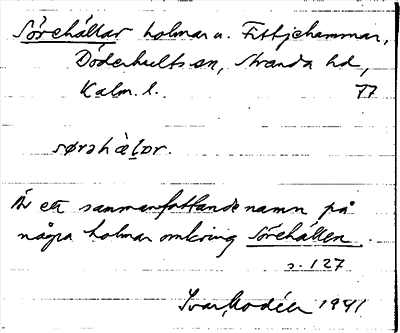 Sörehällar holmar u. Fittjehammar,
Döderhults sn, Stranda hd,
Kalm. l. 77
sørəhæ̀lar.
Är ett sammanfattande namn på
några holmar omkring Sörehällen
s. 127
Ivar Modéer 1941